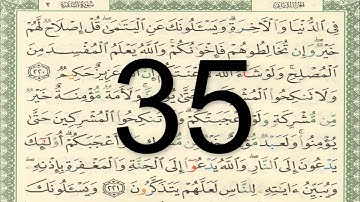 فِى ٱلدُّنْيَا وَٱلْـَٔاخِرَةِ ۗ وَيَسْـَٔلُونَكَ عَنِ ٱلْيَتَـٰمَىٰ ۖ قُلْ إِصْلَاحٌ لَّهُمْ
خَيْرٌ ۖ وَإِن تُخَالِطُوهُمْ فَإِخْوَٰنُكُمْ ۚ وَٱللَّهُ يَعْلَمُ ٱلْمُفْسِدَ مِنَ
ٱلْمُصْلِحِ ۚ وَلَوْ شَآءَ عَزِيزٌ حَكِيمٌ ٢٢٠
وَلَا تَنكِحُوا۟ وَلَأَمَةٌ مُّؤْمِنَةٌ خَيْرٌ
مِّن مُّشْرِكَةٍ وَلَوْ أَعْجَبَتْكُمْ ٱلْمُشْرِكِينَ حَتَّىٰ
35
يُؤْمِنُوا۟ ۚ وَلَعَبْدٌ أَعْجَبَكُمْ ۗ أُو۟لَـٰٓئِكَ
يَدْعُونَ إِلَى ٱلنَّارِ ۖ وَٱللَّهُ يَدْعُوٓا۟ إِلَى ٱلْجَنَّةِ وَٱلْمَغْفِرَةِ بِإِذْنِهِۦ ۖ
وَيُبَيِّنُ ءَايَـٰتِهِۦ لِلنَّاسِ لَعَلَّهُمْ يَتَذَكَّرُونَ ٢٢١ وَيَسْـَٔلُونَكَ